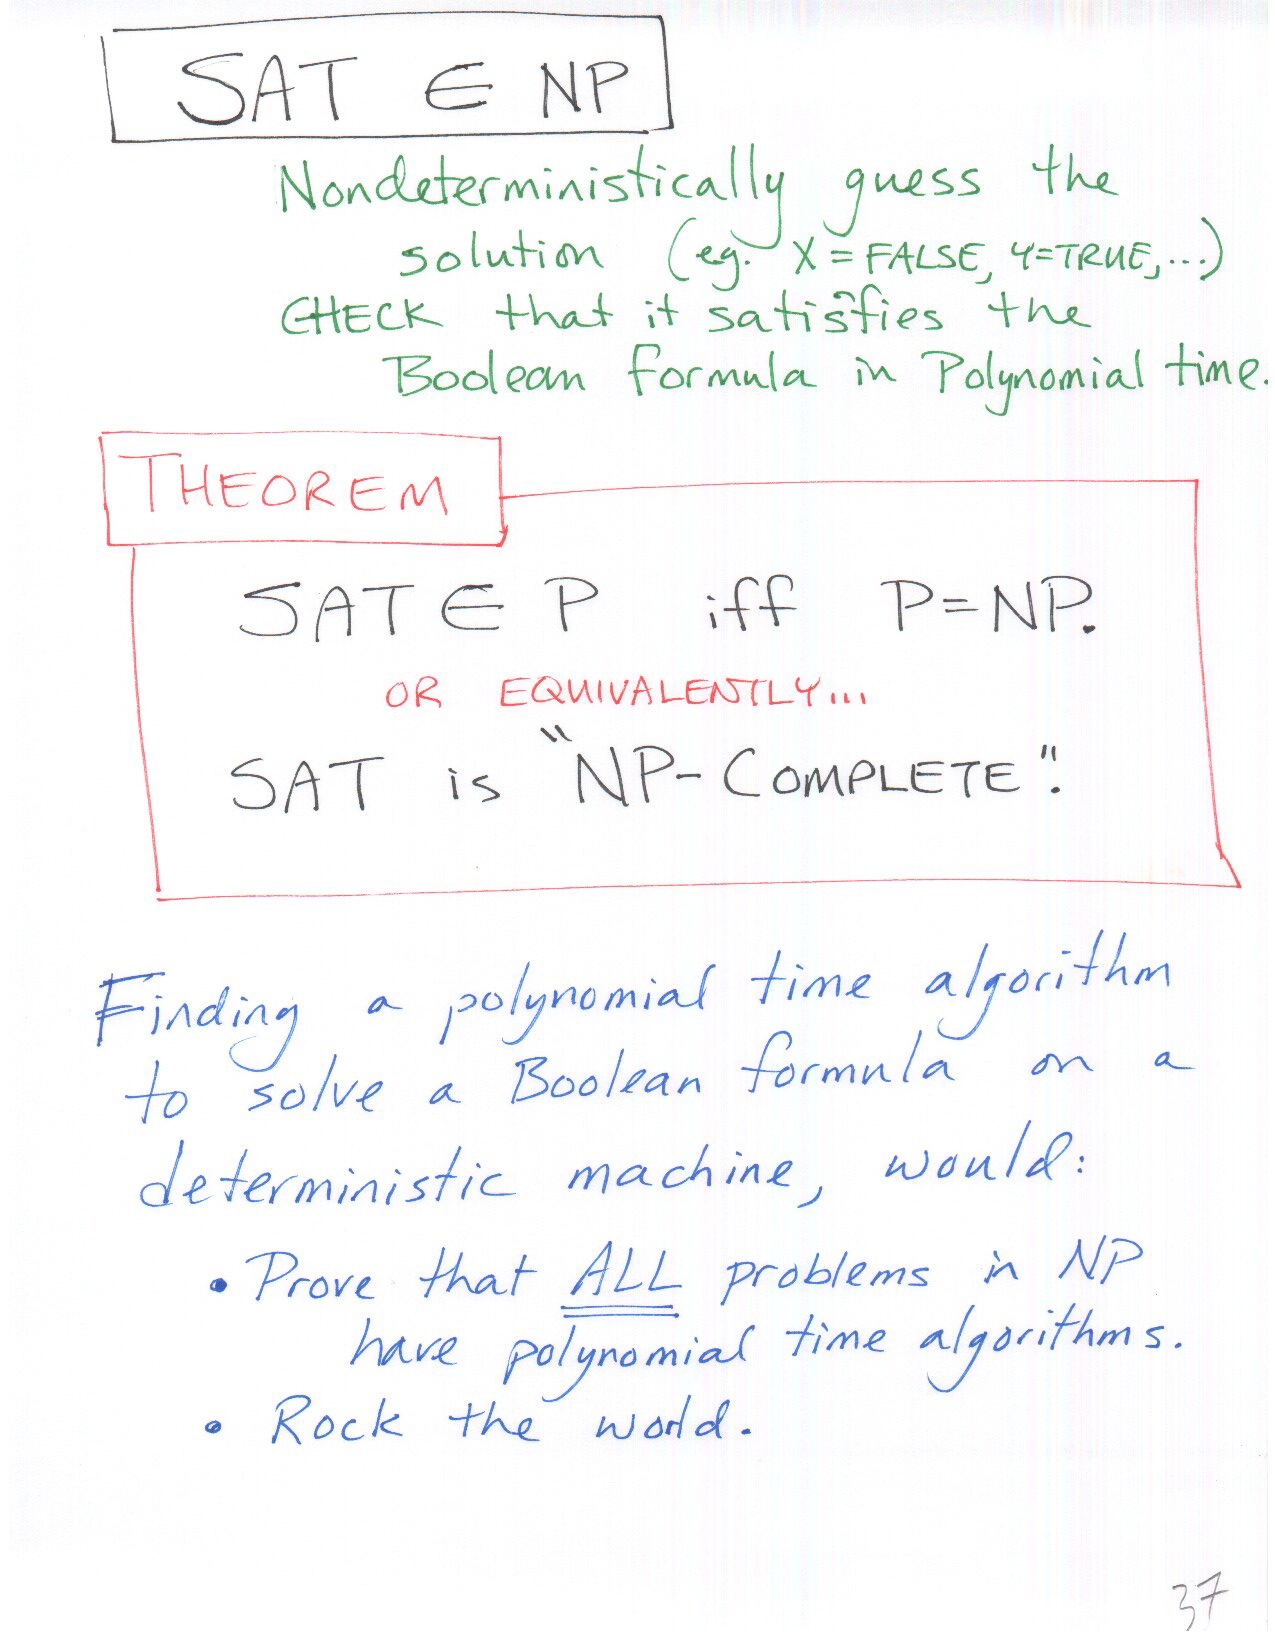 SAT ∈ NP
Nondeterministically guess the
solution (eg. X = FALSE, Y=TRUE, ...)
CHECK that it satisfies the
Boolean formula in Polynomial time.
THEOREM
SAT ∈ P iff P=NP.
OR EQUIVALENTLY...
SAT is "NP-COMPLETE".
Finding a polynomial time algorithm
to solve a Boolean formula on a
deterministic machine, would:
• Prove that ALL problems in NP
have polynomial time algorithms.
• Rock the world.
37